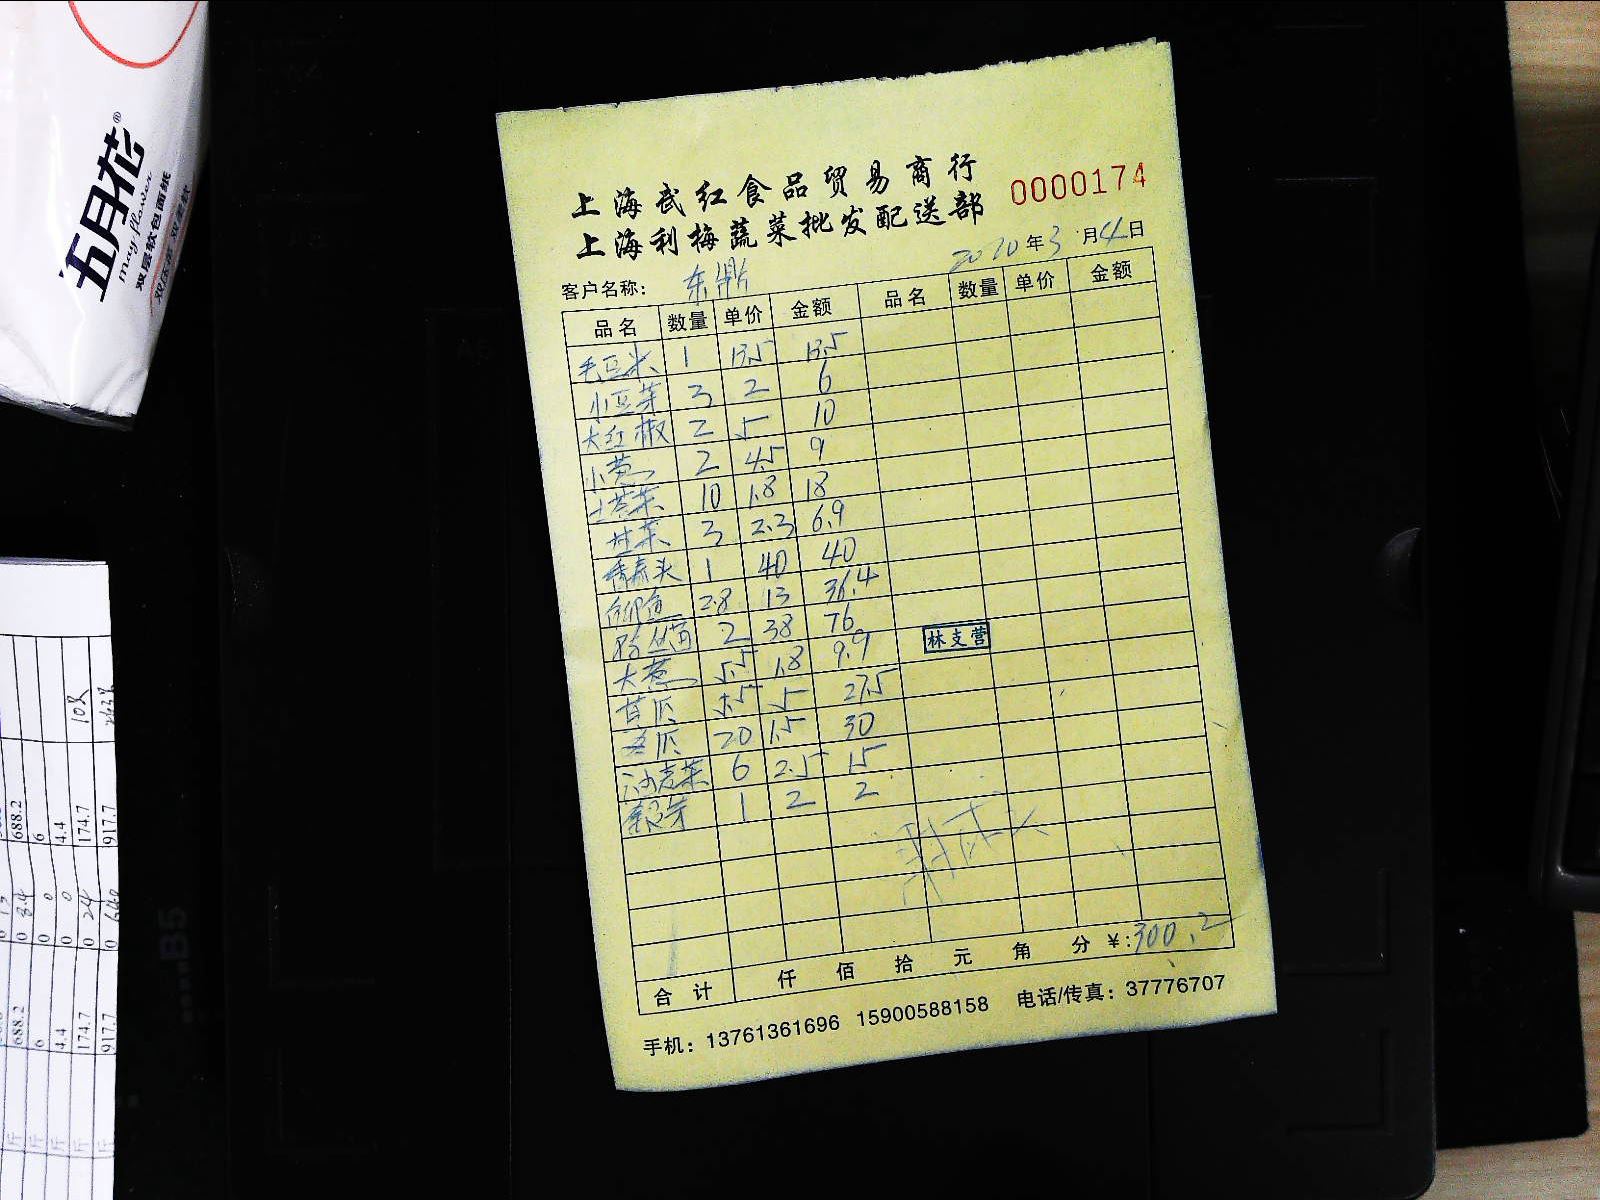 五月花®
May Flower
双层软包面纸
上海武红食品贸易商行
上海利梅蔬菜批发配送部
0000174
2020年3月4日
客户名称：东鼎
品名 数量 单价 金额 品名 数量 单价 金额
毛豆米 1 13.5 13.5
小豆芽 3 2 6
大红椒 2 5 10
小葱 2 4.5 9
10 1.8 18
3 2.3 6.9
1 40 40
2.8 13 36.4
2 38 76
大葱 5.5 1.8 9.9
5.5 5 27.5
冬瓜 20 1.5 30
油麦菜 6 2.5 15
银芽 1 2 2
林支营
合计 仟 佰 拾 元 角 分 ¥:300.2
手机：13761361696 15900588158 电话/传真：37776707
B5
10只
688.2
6
4.4
174.7
917.7
0 24
688.2
6
4.4
174.7
917.7